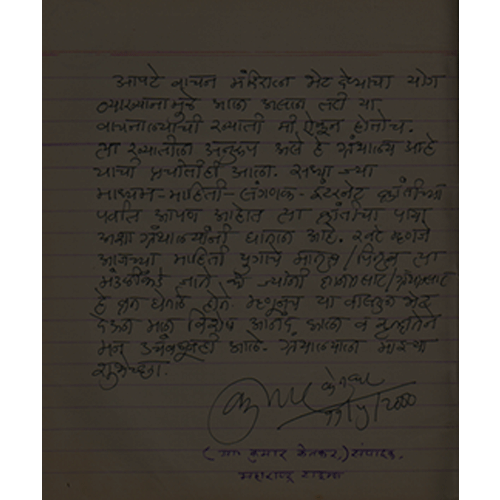 आपटे वाचन मंदिराला भेट देण्याचा योग
व्याख्यानामुळे आज आला. तशी या
वाचनालयाची ख्याती मी ऐकून होतोच.
त्या ख्यातीला अनुरूप असे हे ग्रंथालय आहे
याची प्रचीतीही आली. सध्या ज्या
माध्यम-माहिती-संगणक-इंटरनेट क्रांतीच्या
पर्वात आपण आहोत त्या क्रांतीचा पाया
अशा ग्रंथालयांनी घातला आहे. खरे म्हणजे
आजच्या माहिती युगाचे मातृत्व/पितृत्व त्या
मंडळींकडे जाते की ज्यांनी
हे व्रत घेतले होते. म्हणूनच या वास्तूला भेट
देऊन मला विशेष आनंद झाला व कृतज्ञतेने
मन उचंबळूनही आले. ग्रंथालयाला माझ्या
शुभेच्छा.
केतकर
11/5/2000
(मा. कुमार केतकर) संपादक.
महाराष्ट्र टाइम्स